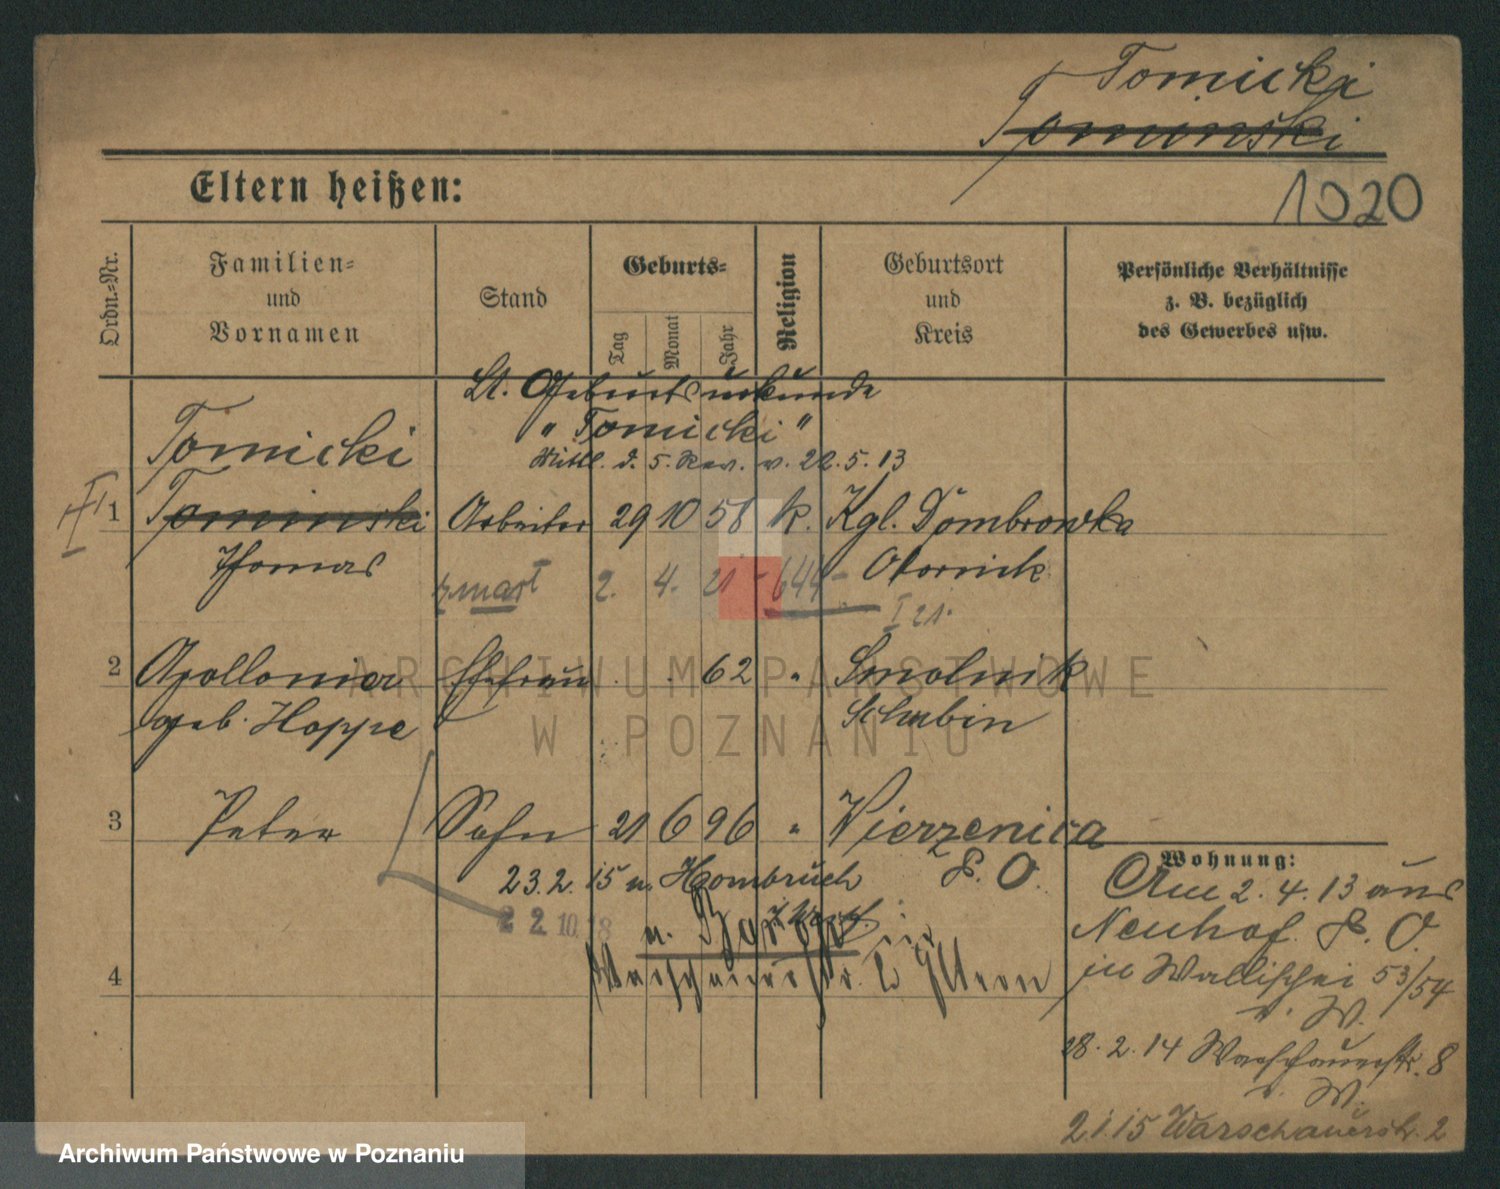 Tomicki
Tominski
Eltern heißen:
1020
Ordn.-Nr.
Familien-
und
Vornamen
Stand
Geburts-
Tag
Monat
Jahr
Religion
Geburtsort
und
Kreis
Persönliche Verhältnisse
z. B. bezüglich
des Gewerbes usw.
Lt. Geburtsurkunde
"Tomicki"
Mittl. d. 5. Rev. v. 22.5.13
Tomicki
1 Tominski Arbeiter 29 10 58 k. Kgl. Dombrowka
Thomas Obornick
2. 4. 21 - 644 -
I 21.
2 Apollonia Ehefrau 62 " Smolnik
geb. Hoppe Schubin
3 Peter Sohn 21 6 96 " Wierzenica
P. O.
23.2.15 n. Hombruch
22.10.18
4 Warschauerstr. 2 Eltern
Wohnung:
Am 2.4.13 aus
Neuhof P. O.
in Wallischei 53/54
v. W.
28.2.14 Warschauerstr. 8
v. W.
2.1.15 Warschauerstr. 2
ARCHIWUM PAŃSTWOWE
W POZNANIU
Archiwum Państwowe w Poznaniu